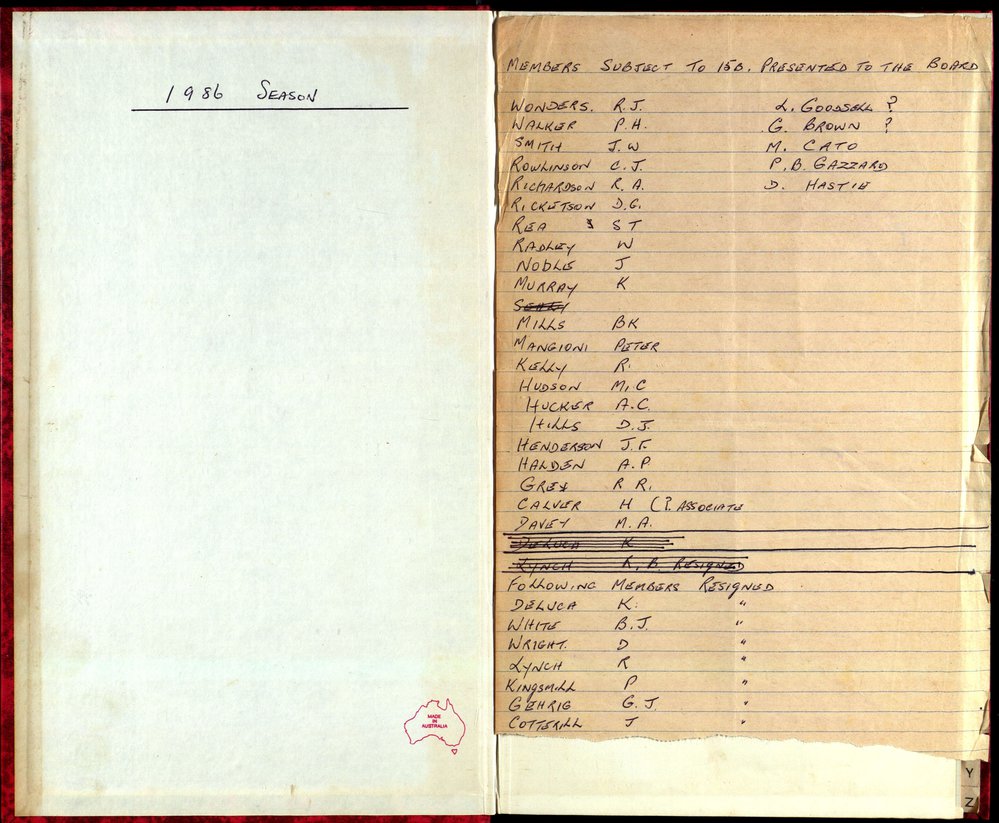 1986 SEASON
MADE
IN
AUSTRALIA
MEMBERS SUBJECT TO 15B. PRESENTED TO THE BOARD
WONDERS. R.J. L. GOODSELL ?
WALKER P.H. G. BROWN ?
SMITH J.W M. CATO
ROWLINSON C.J. P.B. GAZZARD
RICHARDSON R.A. D. HASTIE
RICKETSON D.G.
REA S T
RADLEY W
NOBLE J
MURRAY K
MILLS BK
MANGIONI PETER
KELLY R.
HUDSON M.C
HUCKER A.C.
HILLS D.J.
HENDERSON J.F.
HALDEN A.P
GREY R R.
CALVER H (?. ASSOCIATE
DAVEY M.A.
DELUCA K
LYNCH R.B. RESIGNED
FOLLOWING MEMBERS RESIGNED
DELUCA K. "
WHITE B.J. "
WRIGHT. D "
LYNCH R "
KINGSMILL P "
GEHRIG G.J "
COTTERILL J "
Y
Z